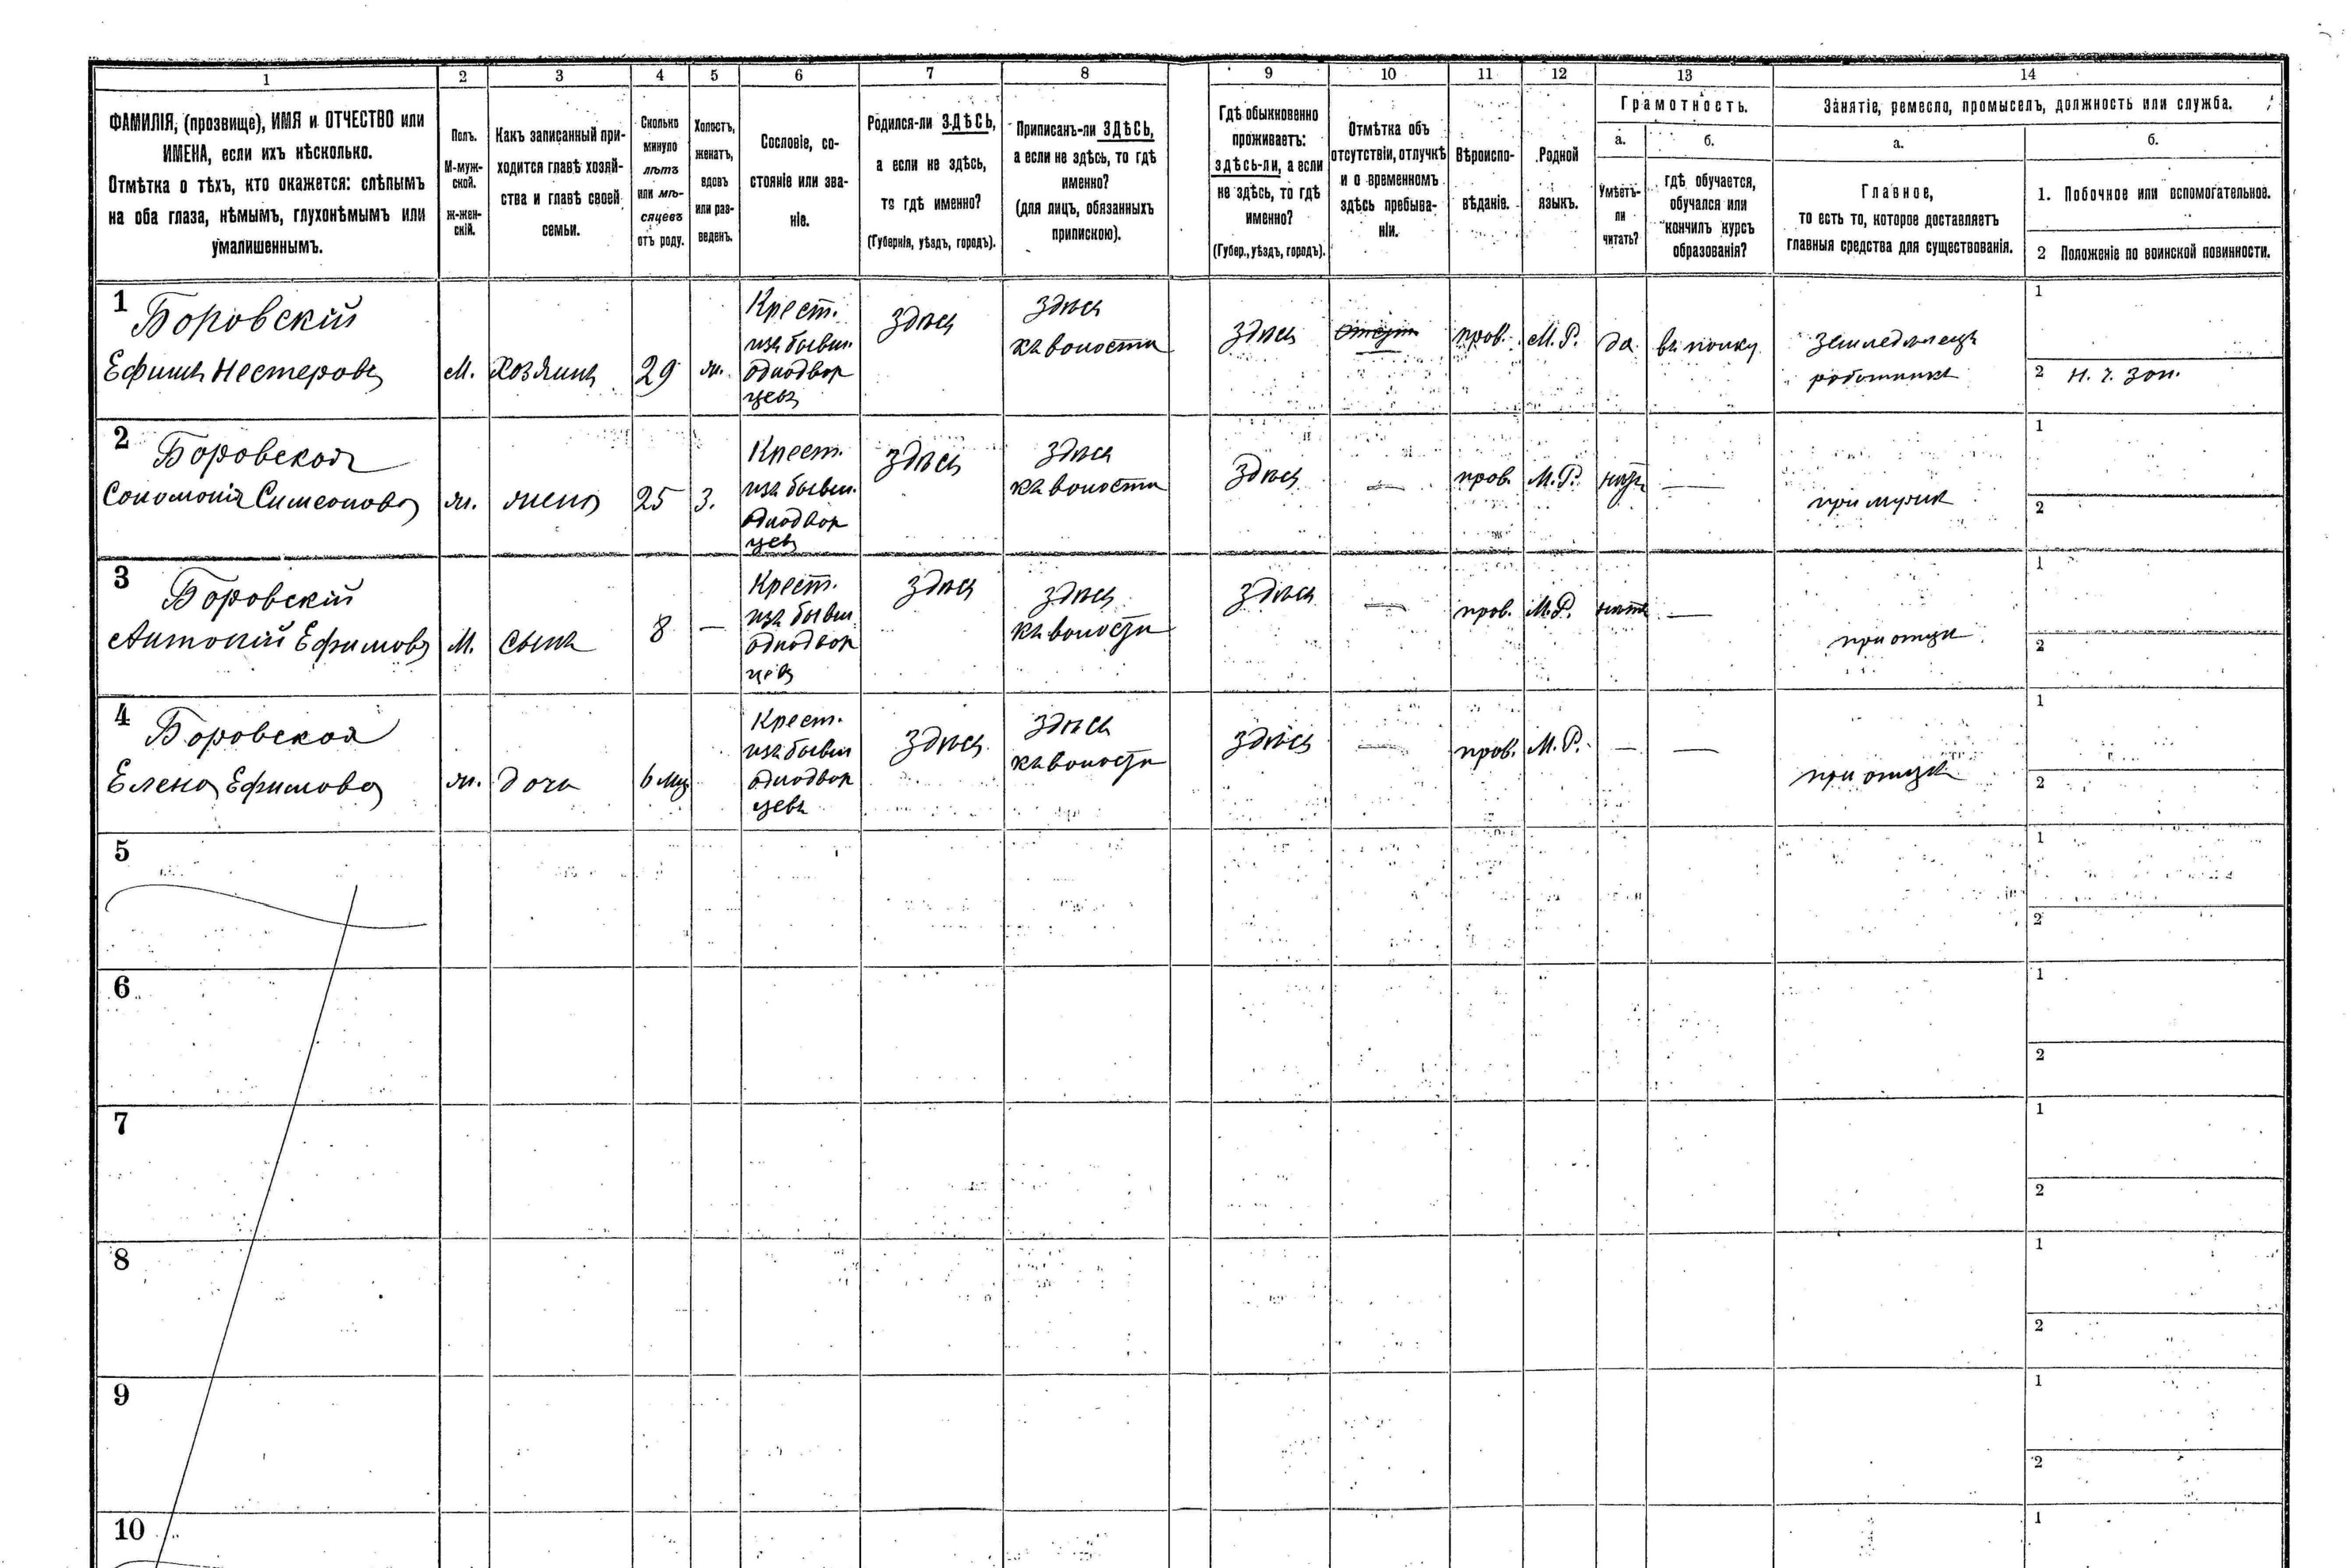 1
2
3
4
5
6
7
8
9
10
11
12
13
14
ФАМИЛІЯ, (прозвище), ИМЯ и ОТЧЕСТВО или
ИМЕНА, если ихъ нѣсколько.
Отмѣтка о тѣхъ, кто окажется: слѣпымъ
на оба глаза, нѣмымъ, глухонѣмымъ или
умалишеннымъ.
Полъ.
М-муж-
ской.
ж-жен-
скій.
Какъ записанный при-
ходится главѣ хозяй-
ства и главѣ своей
семьи.
Сколько
минуло
лѣтъ
или мѣ-
сяцевъ
отъ роду.
Холостъ,
женатъ,
вдовъ
или раз-
веденъ.
Сословіе, со-
стояніе или зва-
ніе.
Родился-ли ЗДѢСЬ,
а если не здѣсь,
то гдѣ именно?
(Губернія, уѣздъ, городъ).
Приписанъ-ли ЗДѢСЬ,
а если не здѣсь, то гдѣ
именно?
(для лицъ, обязанныхъ
припискою).
Гдѣ обыкновенно
проживаетъ:
здѣсь-ли, а если
не здѣсь, то гдѣ
именно?
(Губер., уѣздъ, городъ).
Отмѣтка объ
отсутствіи, отлучкѣ
и о временномъ
здѣсь пребыва-
ніи.
Вѣроиспо-
вѣданіе.
Родной
языкъ.
Грамотность.
а.
Умѣетъ-
ли
читать?
б.
гдѣ обучается,
обучался или
кончилъ курсъ
образованія?
Занятіе, ремесло, промыселъ, должность или служба.
а.
Главное,
то есть то, которое доставляетъ
главныя средства для существованія.
б.
1. Побочное или вспомогательное.
2 Положеніе по воинской повинности.
1
Боровскій
Ефимъ Нестеровъ
М.
хозяинъ
29
ж.
Крест.
изъ бывш.
однодвор
цевъ
здѣсь
здѣсь
къ волости
здѣсь
пров.
М. Р.
да
въ полку
земледѣлецъ
работникъ
1
2 Н. ч. зап.
2
Боровская
Соломонія Симеонова
ж.
жена
25
з.
Крест.
изъ бывш.
однодвор
цевъ
здѣсь
здѣсь
къ волости
здѣсь
—
пров.
М. Р.
нѣтъ
—
при мужѣ
1
2
3
Боровскій
Антоній Ефимовъ
М.
сынъ
8
—
Крест.
изъ бывш.
однодвор
цевъ
здѣсь
здѣсь
къ волости
здѣсь
—
пров.
М. Р.
нѣтъ
—
при отцѣ
1
2
4
Боровская
Елена Ефимова
ж.
дочь
6 мц
Крест.
изъ бывш
однодвор
цевъ
здѣсь
здѣсь
къ волости
здѣсь
—
пров.
М. Р.
—
—
при отцѣ
1
2
5
1
2
6
1
2
7
1
2
8
1
2
9
1
2
10
1